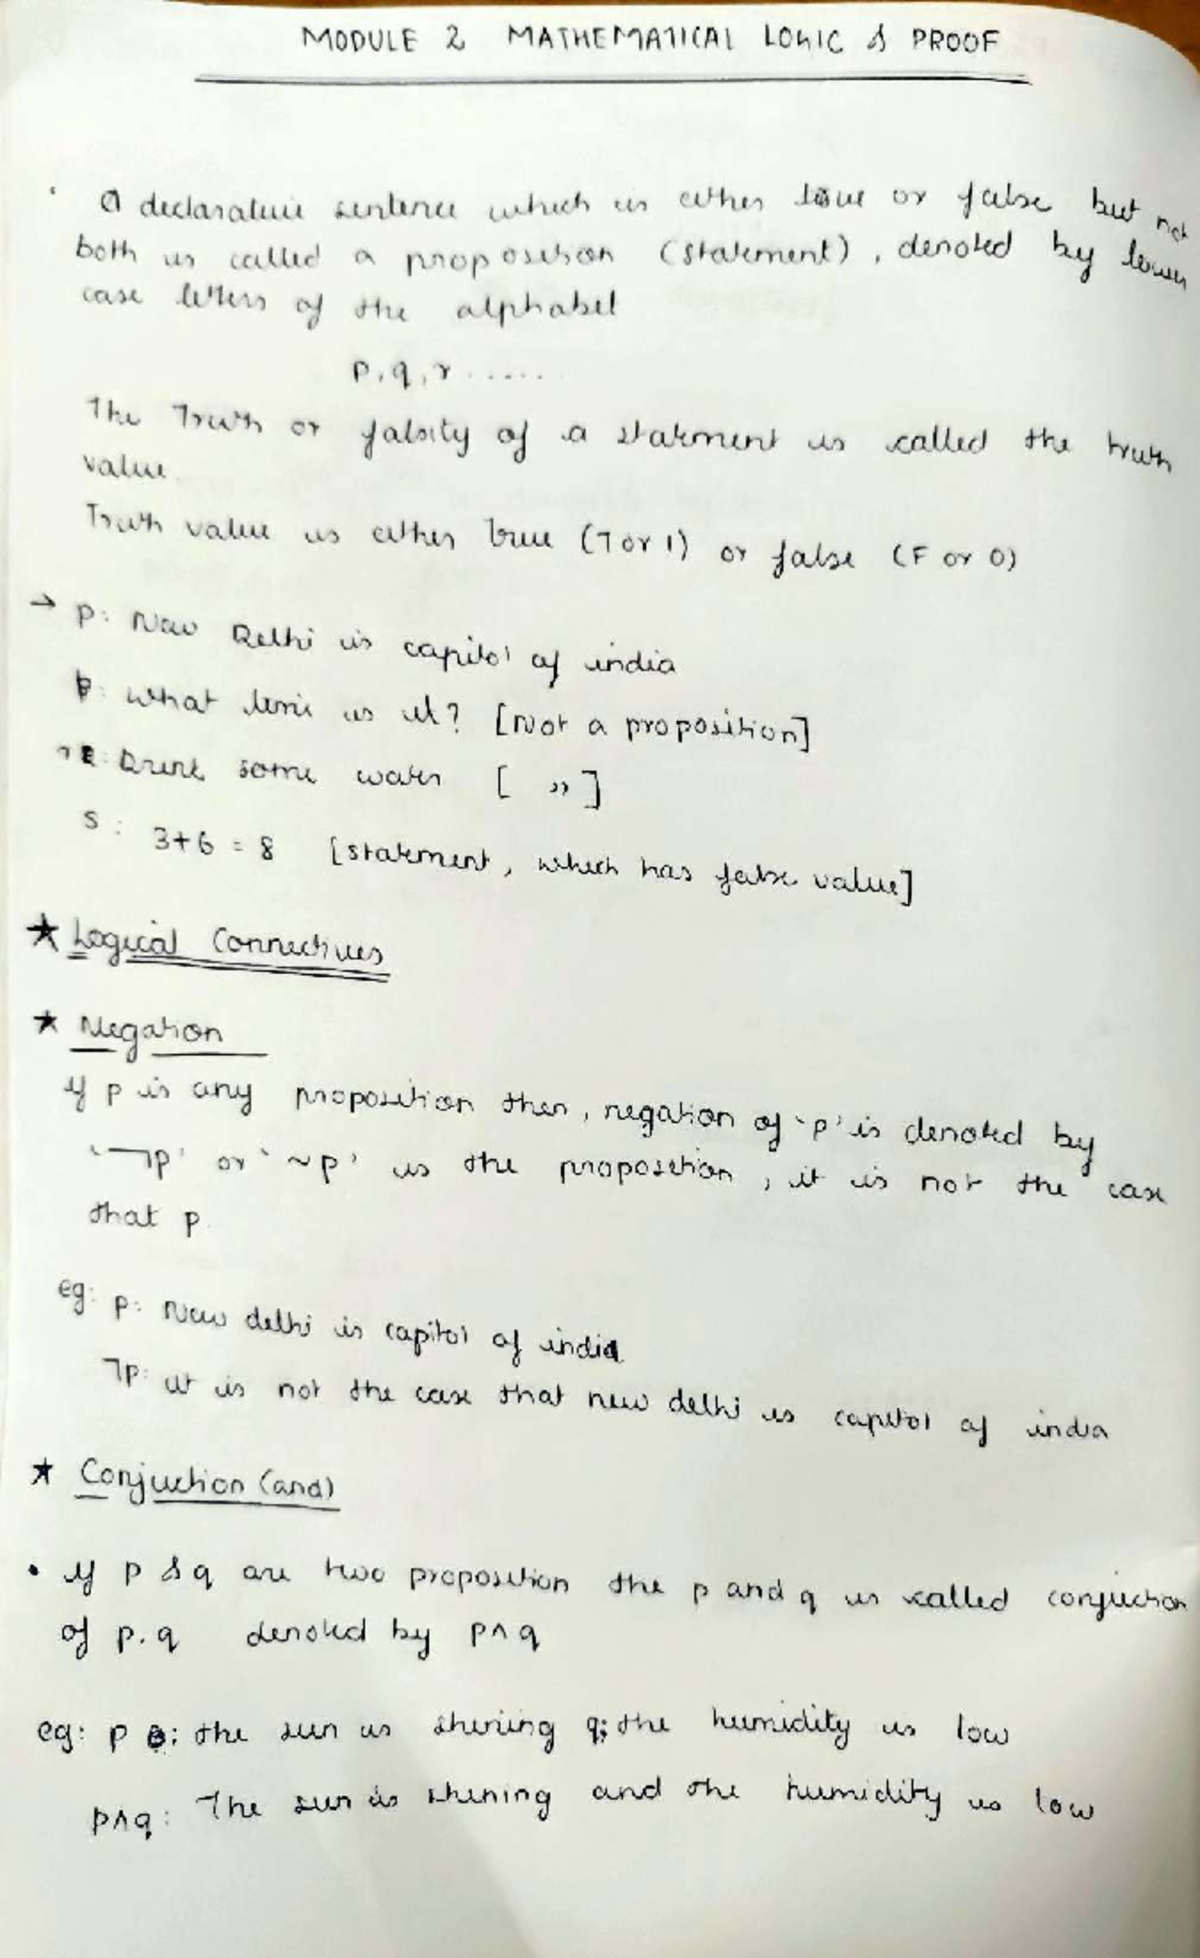 MODULE 2 MATHEMATICAL LOGIC & PROOF
A declarative sentence which is either true or false but not
both is called a proposition (statement), denoted by lower
case letters of the alphabet
p, q, r .....
The Truth or falsity of a statement is called the truth
value.
Truth value is either true (T or 1) or false (F or 0)
→ p: New Delhi is capitol of india
: what time is it? [Not a proposition]
: Drink some water [ " ]
S : 3+6 = 8 [statement, which has false value]
★ Logical Connectives
★ Negation
if p is any proposition then, negation of 'p' is denoted by
'¬p' or '~p' is the proposition, it is not the case
that p.
eg: p: New delhi is capitol of india
¬p: it is not the case that new delhi is capitol of india
★ Conjuction (and)
• if p & q are two proposition the p and q is called conjuction
of p.q denoted by p∧q
eg: p : the sun is shining q: the humidity is low
p∧q: The sun is shining and the humidity is low